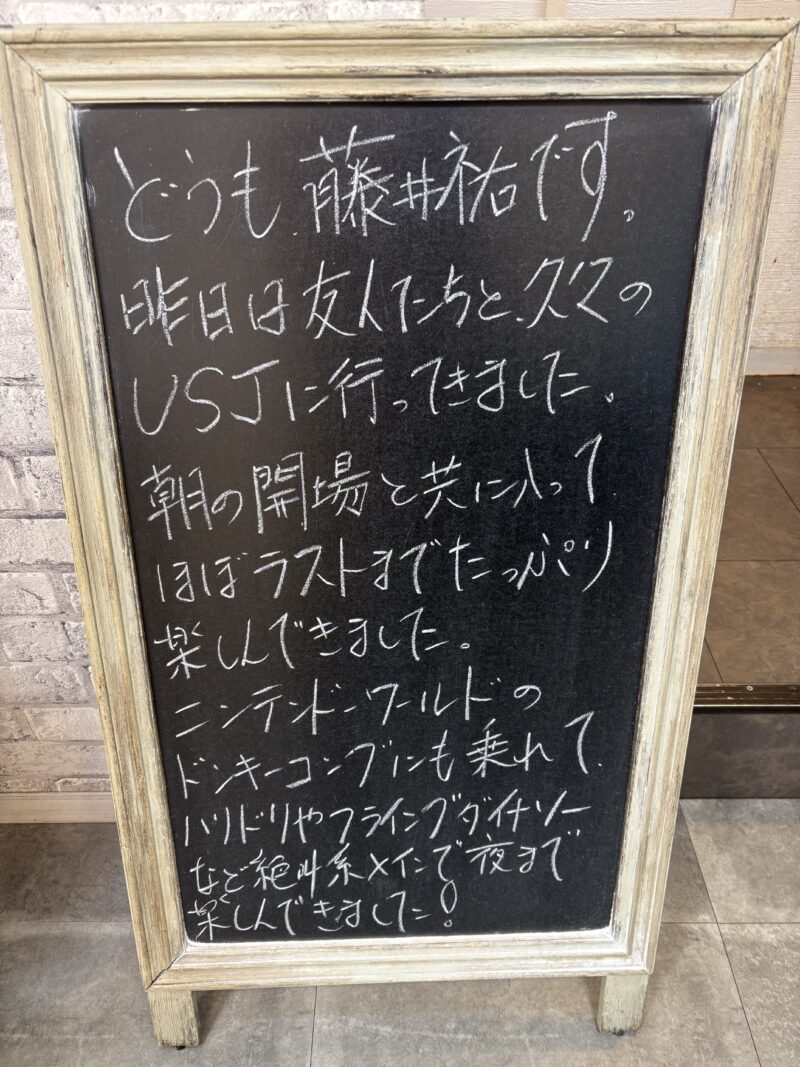 どうも、藤井祐です。
昨日は友人たちと、久々の
USJに行ってきました。
朝の開場と共に入って、
ほぼラストまでたっぷり
楽しんできました。
ニンテンドーワールドの
ドンキーコングにも乗れて、
ハリドリやフライングダイナソー
など絶叫系メインで夜まで
楽しんできました!